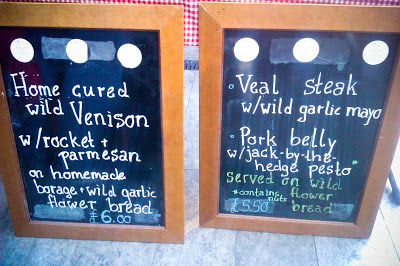 Home cured
wild Venison
w/rocket +
parmesan
on homemade
borage + wild garlic
flower bread
£6.00
• Veal steak
w/wild garlic mayo
• Pork belly
w/jack-by-the-
hedge pesto*
served on wild
*contains nuts flower
£5.50 bread